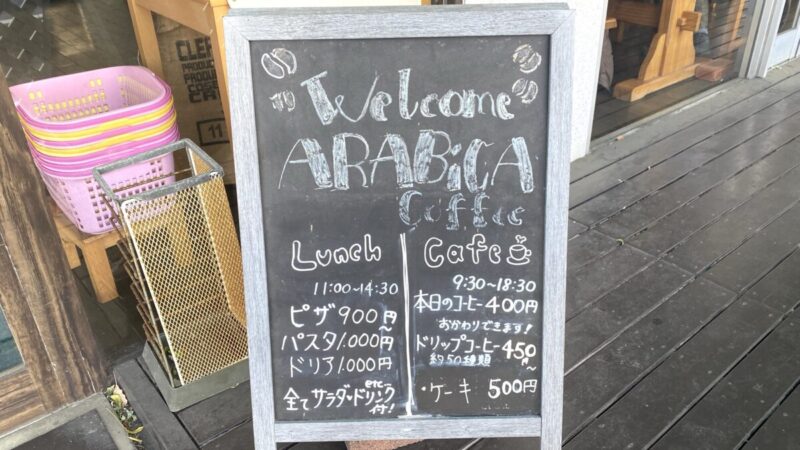 Welcome
ARABiCA
Coffee
Lunch
11:00~14:30
ピザ 900円~
パスタ 1.000円
ドリア 1.000円
etc...
全てサラダ・ドリンク
付!
Cafe
9:30~18:30
本日のコーヒー 400円
おかわりできます!
ドリップコーヒー 450円~
約50種類
・ケーキ 500円
PRODUCE
11